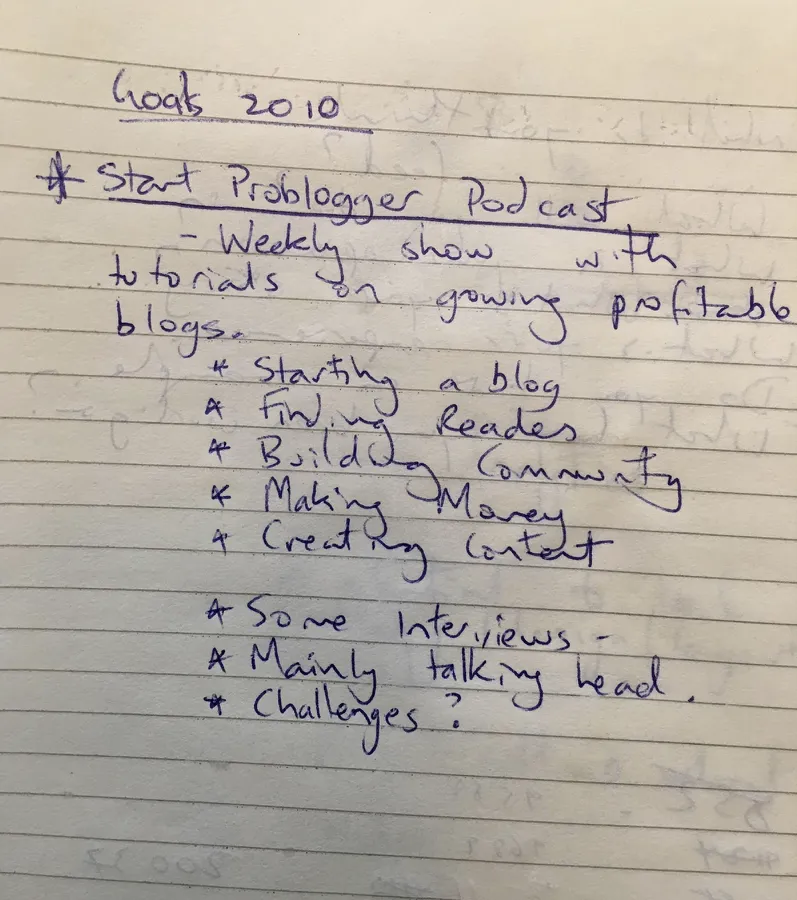 Goals 2010
* Start Problogger Podcast
- Weekly show with
tutorials on growing profitable
blogs.
* Starting a blog
* Finding Reades
* Building Community
* Making Money
* Creating Content
* Some Interviews -
* Mainly talking head.
* Challenges?